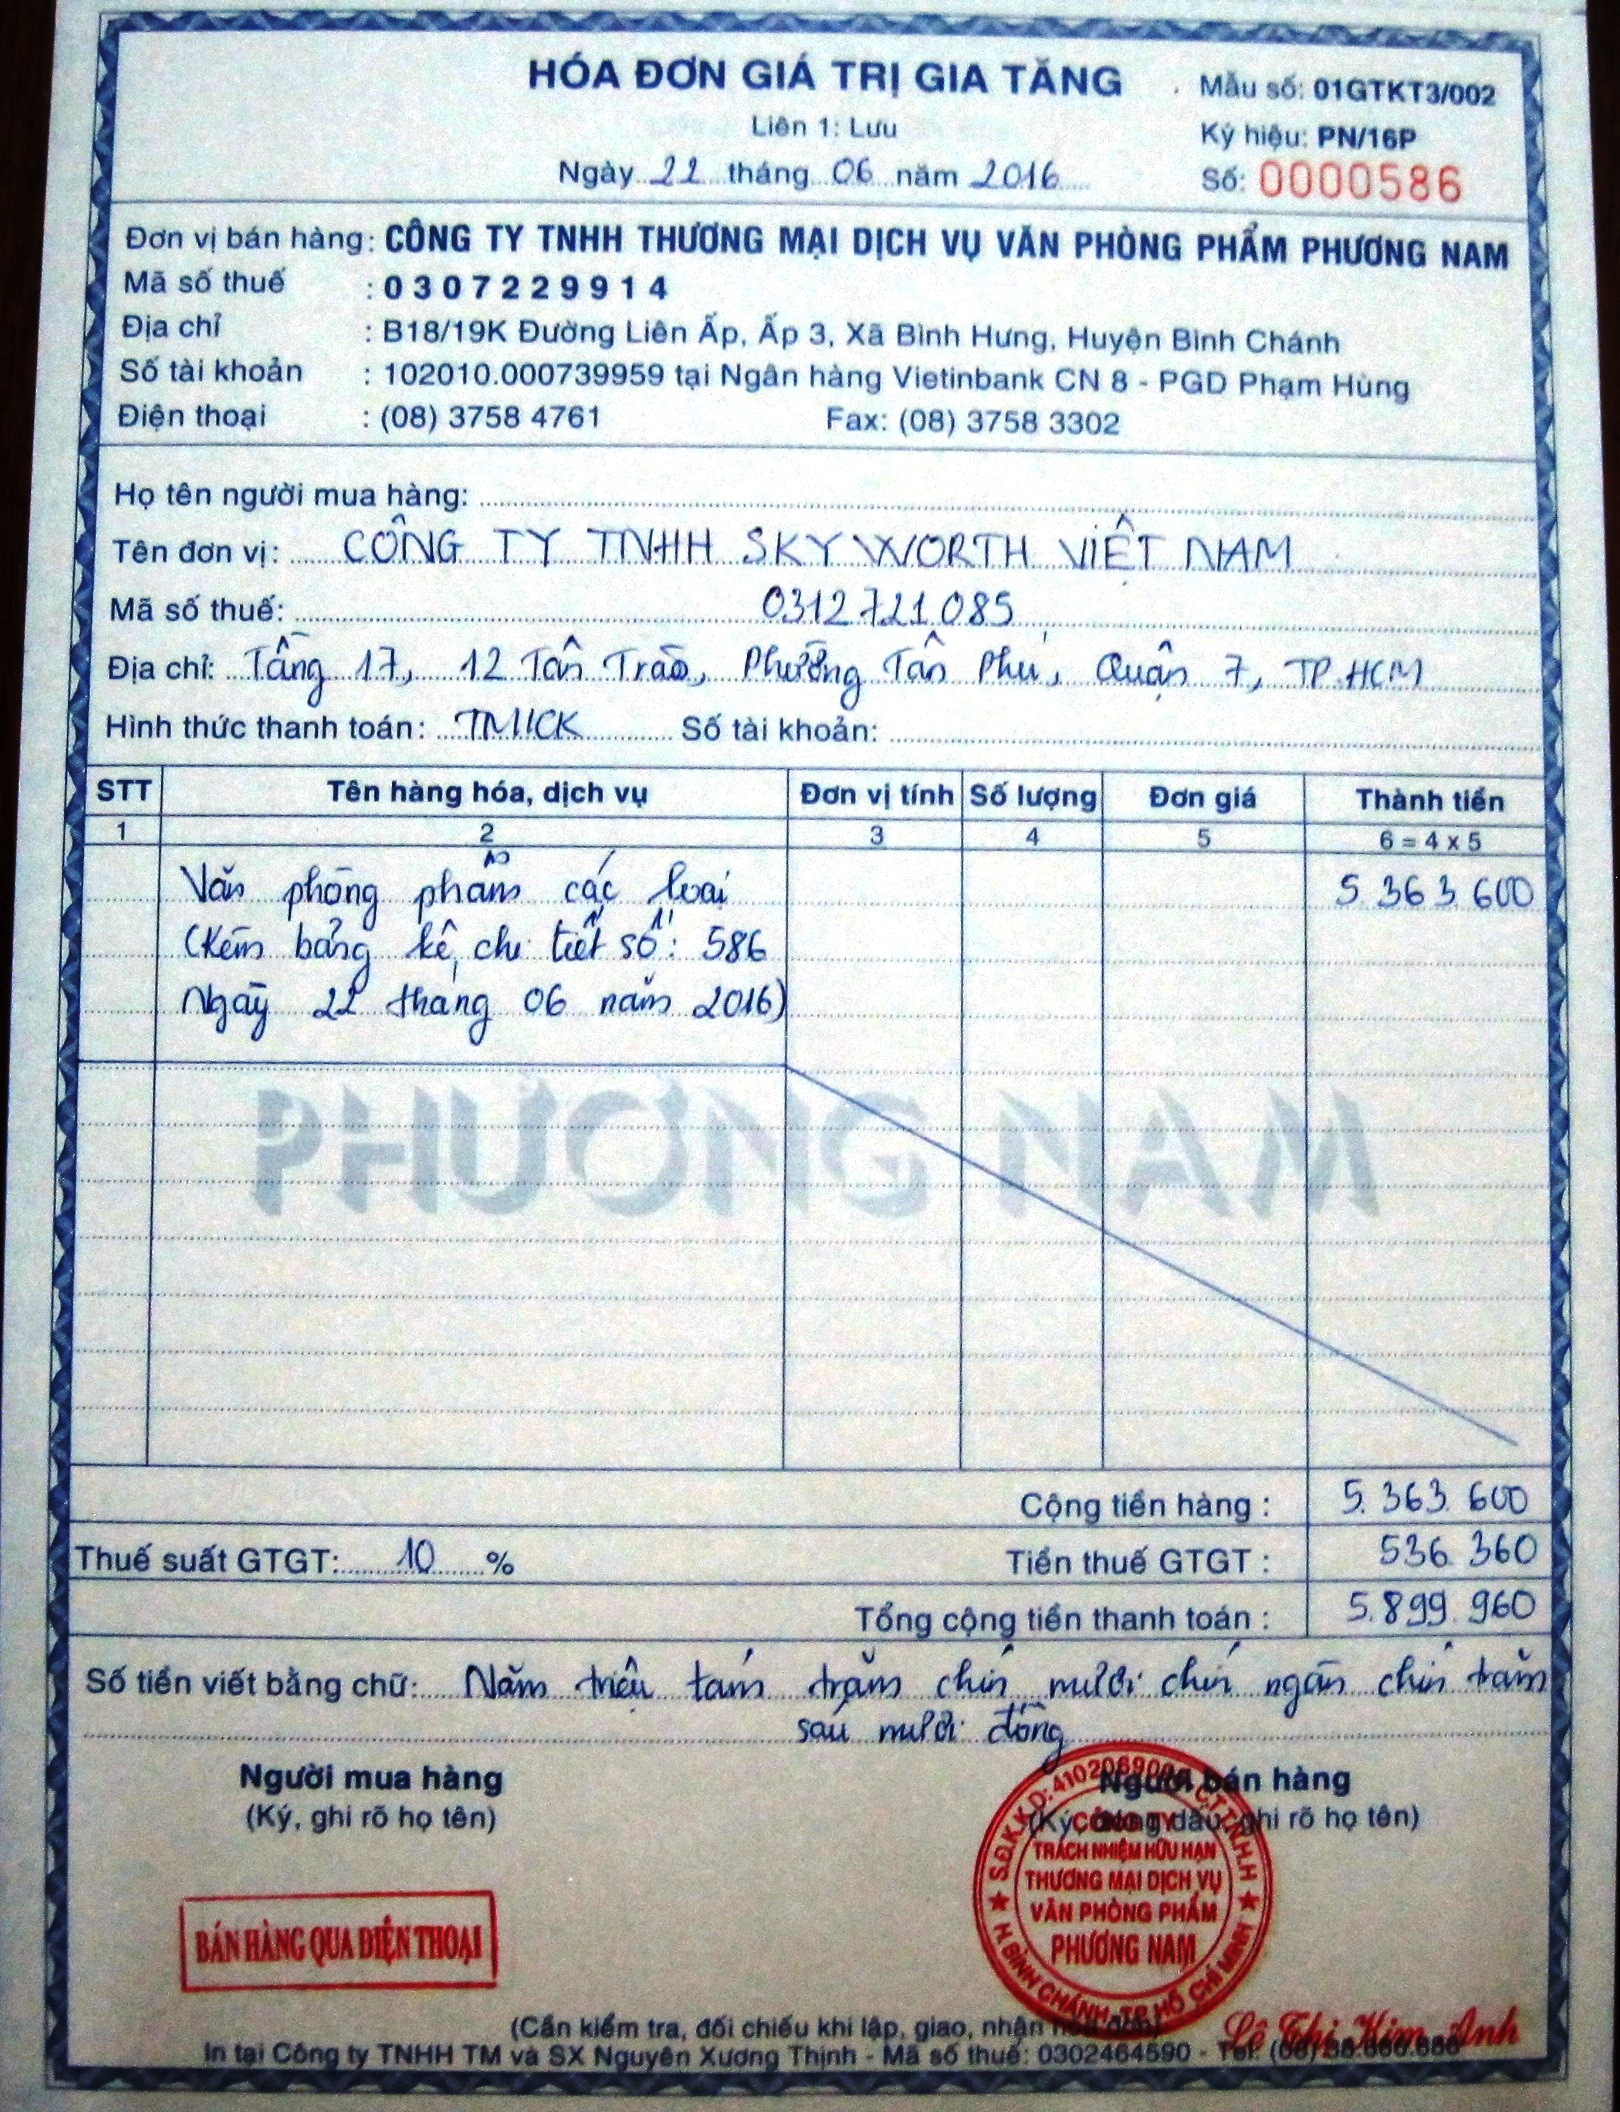 HÓA ĐƠN GIÁ TRỊ GIA TĂNG
Mẫu số: 01GTKT3/002
Liên 1: Lưu
Ký hiệu: PN/16P
Ngày 22 tháng 06 năm 2016
Số: 0000586
Đơn vị bán hàng: CÔNG TY TNHH THƯƠNG MẠI DỊCH VỤ VĂN PHÒNG PHẨM PHƯƠNG NAM
Mã số thuế : 0307229914
Địa chỉ : B18/19K Đường Liên Ấp, Ấp 3, Xã Bình Hưng, Huyện Bình Chánh
Số tài khoản : 102010.000739959 tại Ngân hàng Vietinbank CN 8 - PGD Phạm Hùng
Điện thoại : (08) 3758 4761 Fax: (08) 3758 3302
Họ tên người mua hàng:
Tên đơn vị: CÔNG TY TNHH SKYWORTH VIỆT NAM
Mã số thuế: 0312721085
Địa chỉ: Tầng 17, 12 Tân Trào, Phường Tân Phú, Quận 7, TP.HCM
Hình thức thanh toán: TM/CK Số tài khoản:
STT Tên hàng hóa, dịch vụ Đơn vị tính Số lượng Đơn giá Thành tiền
1 2 3 4 5 6 = 4 x 5
Văn phòng phẩm các loại 5.363.600
(Kèm bảng kê chi tiết số: 586
Ngày 22 tháng 06 năm 2016)
PHƯƠNG NAM
Cộng tiền hàng : 5.363.600
Thuế suất GTGT: 10 % Tiền thuế GTGT : 536.360
Tổng cộng tiền thanh toán : 5.899.960
Số tiền viết bằng chữ: Năm triệu tám trăm chín mươi chín ngàn chín trăm
sáu mươi đồng
Người mua hàng Người bán hàng
(Ký, ghi rõ họ tên) (Ký, đóng dấu, ghi rõ họ tên)
CÔNG TY
TRÁCH NHIỆM HỮU HẠN
THƯƠNG MẠI DỊCH VỤ
VĂN PHÒNG PHẨM
PHƯƠNG NAM
H.BÌNH CHÁNH-TP.HỒ CHÍ MINH
BÁN HÀNG QUA ĐIỆN THOẠI
Lê Thị Kim Anh
(Cần kiểm tra, đối chiếu khi lập, giao, nhận hóa đơn)
In tại Công ty TNHH TM và SX Nguyên Xương Thịnh - Mã số thuế: 0302464590 - Tel: